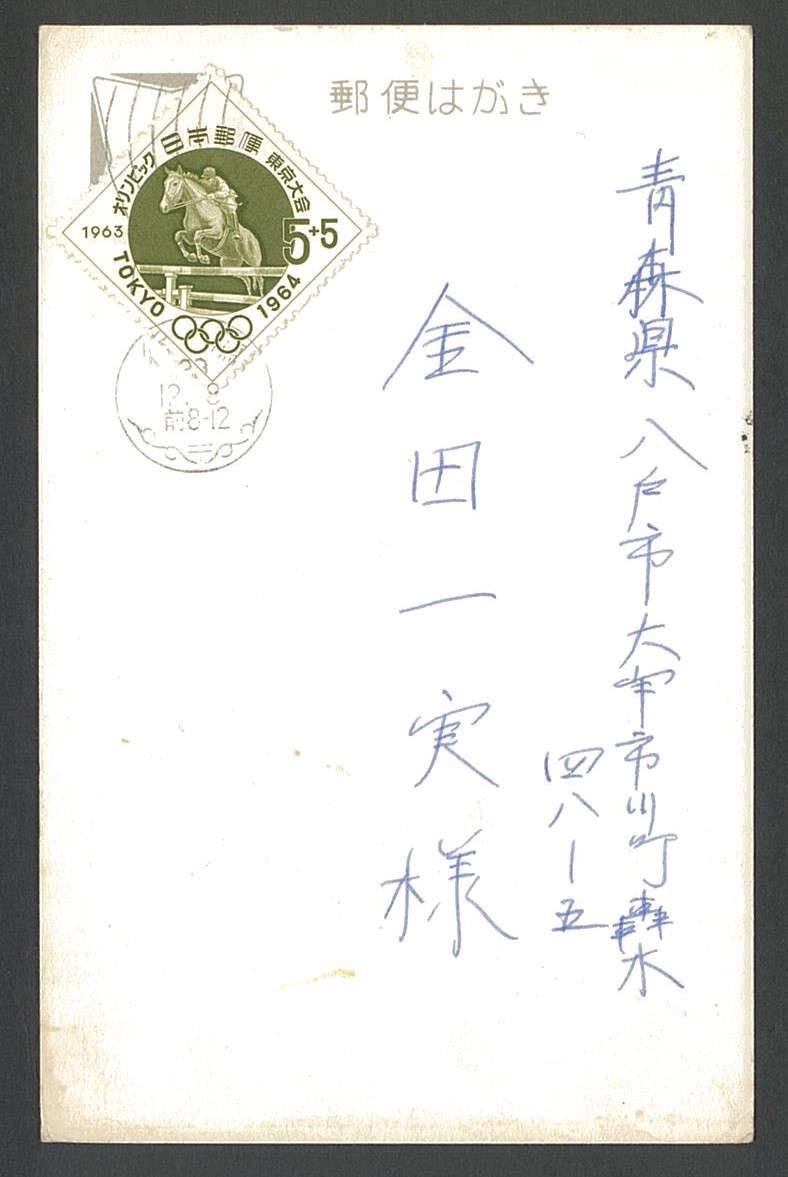 郵便はがき
日本郵便
オリンピック東京大会
1963
5+5
TOKYO 1964
12. 8
前8-12
青森県八戸市大字市川町轟木
四八ー五
金田一実様